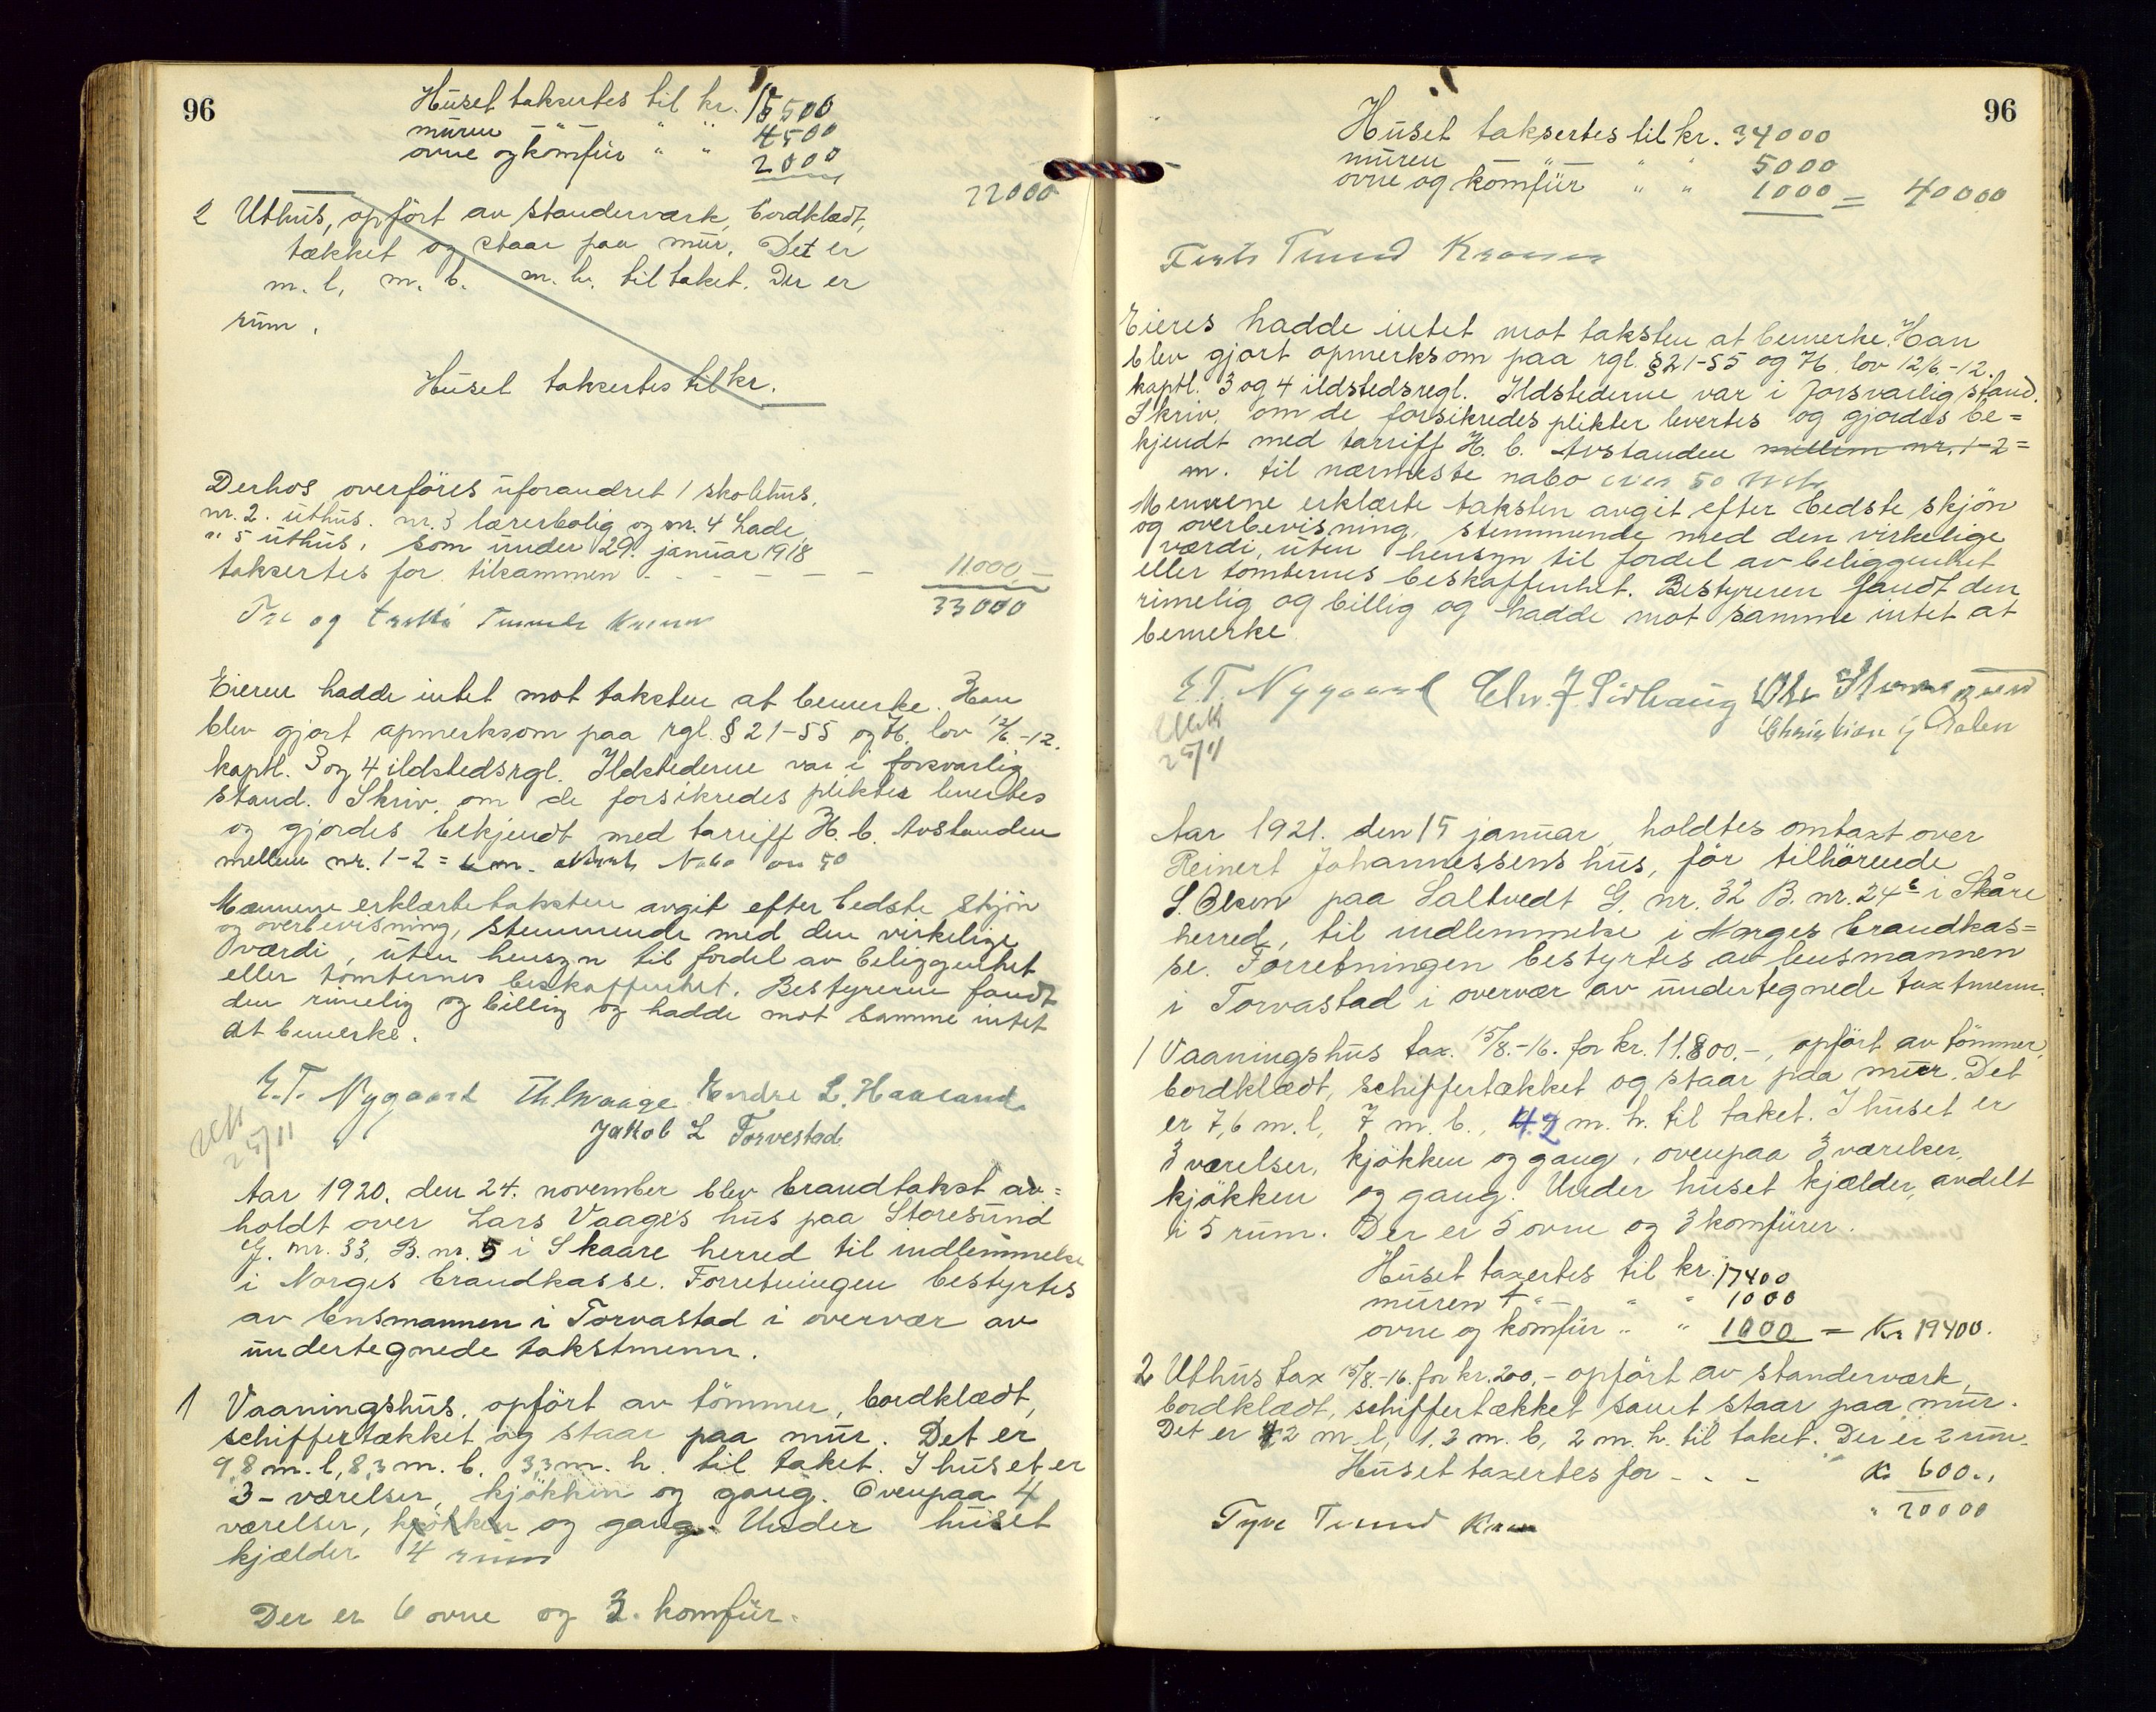 96
Huset taksertes til kr. 15500
muren - " - " " 4500
ovne og komfür " " 2000
22000
2 Uthus, opført av standerværk, bordklædt,
tækket og staar paa mur. Det er
m. l, m. b. m. h. til taket. Der er
rum.
Huset taksertes til kr.
Derhos overføres uforandret 1 skolehus,
nr. 2. uthus. nr. 3 lærerbolig og nr. 4 Lade,
" 5 uthus, som under 29. januar 1918
taksertes for tilsammen - - - - - 11000.-
33000
Tre og tretti Tusinde Kroner
Eieren hadde intet mot taksten at bemerke. Han
blev gjort opmerksom paa rgl. § 21-55 og 76. lov 12/6.-12.
kaptl. 3 og 4 ildstedsrgl. Ildstederne var i forsvarlig
stand. Skriv. om de forsikredes plikter levertes
og gjordes bekjendt med tarriff H. b. Avstanden
mellem nr. 1-2 = 6 m. Nabo 50
Mænnene erklærte taksten avgit efter bedste skjøn
og overbevisning, stemmende med den virkelige
værdi, uten hensyn til fordel av beliggenhet
eller tomternes beskaffenhet. Bestyreren fandt
den rimelig og billig og hadde mot samme intet
at bemerke.
E. T. Nygaard Th. Waage Endre L. Haaland
Jakob L Torvestad
25/11
Aar 1920. den 24. november blev brandtakst av-
holdt over Lars Vaage's hus paa Storesund
G. nr. 33, B. nr. 5 i Skaare herred til indlemmelse
i Norges brandkasse. Forretningen bestyrtes
av lensmannen i Torvastad i overvær av
undertegnede takstmenn.
1 Vaaningshus, opført av tømmer, bordklædt,
schiffertækket og staar paa mur. Det er
9,8 m. l, 8,3 m. b. 3,3 m. h. til taket. I huset er
3 - værelser, kjøkken og gang. Ovenpaa 4
værelser, kjøkken og gang. Under huset
kjælder 4 rum
Der er 6 ovne og 2. komfür.
96
Huset taksertes til kr. 34000
muren - " - " " 5000
ovne og komfür " " 1000 = 40000
Firti Tusind Kroner
Eieres hadde intet mot taksten at bemerke. Han
blev gjort opmerksom paa rgl. § 21-55 og 76. lov 12/6.-12.
kaptl. 3 og 4 ildstedsregl. Ildstederne var i forsvarlig stand.
Skriv. om de forsikredes plikter levertes og gjordes be=
kjendt med tarriff H. b. Avstanden mellem nr. 1-2 =
m. til nærmeste nabo over 50 mtr
Mennene erklærte taksten avgit efter bedste skjøn
og overbevisning, stemmende med den virkelige
værdi, uten hensyn til fordel av beliggenhet
eller tomternes beskaffenhet. Bestyreren fandt den
rimelig og billig og hadde mot samme intet at
bemerke.
E. T. Nygaard Chr. J. Sørhaug
Christian G Dalen
25/11
Aar 1921. den 15 januar, holdtes omtaxt over
Reinert Johannessens hus, før tilhørende
S. Olsen paa Saltvedt G. nr. 32 B. nr. 24 i Skåre
herred, til indlemmelse i Norges brandkas=
se. Forretningen bestyrtes av lensmannen
i Torvastad i overvær av undertegnede taxtmenn.
1 Vaaningshus tax. 15/8.-16. for kr. 11.800.-, opført av tømmer,
bordklædt, schiffertækket og staar paa mur. Det
er 7,6 m. l, 7 m. b., 4.2 m. h. til taket. I huset er
3 værelser, kjøkken og gang, ovenpaa 3 værelser,
kjøkken og gang. Under huset kjælder, avdelt
i 5 rum. Der er 5 ovne og 3 komfürer.
Huset taxertes til kr. 17400
muren + " - " " 1000
ovne og komfür " " 1000 = Kr 19400.
2 Uthus tax 15/8.-16. for kr. 200.- opført av standerværk,
bordklædt, schiffertækket samt staar paa mur.
Det er 2 m. l, 1.2 m. b, 2 m. h. til taket. Der er 2 rum.
Huset taxertes for - - - Kr 600.,
" 20000
Tyve Tusind Kroner